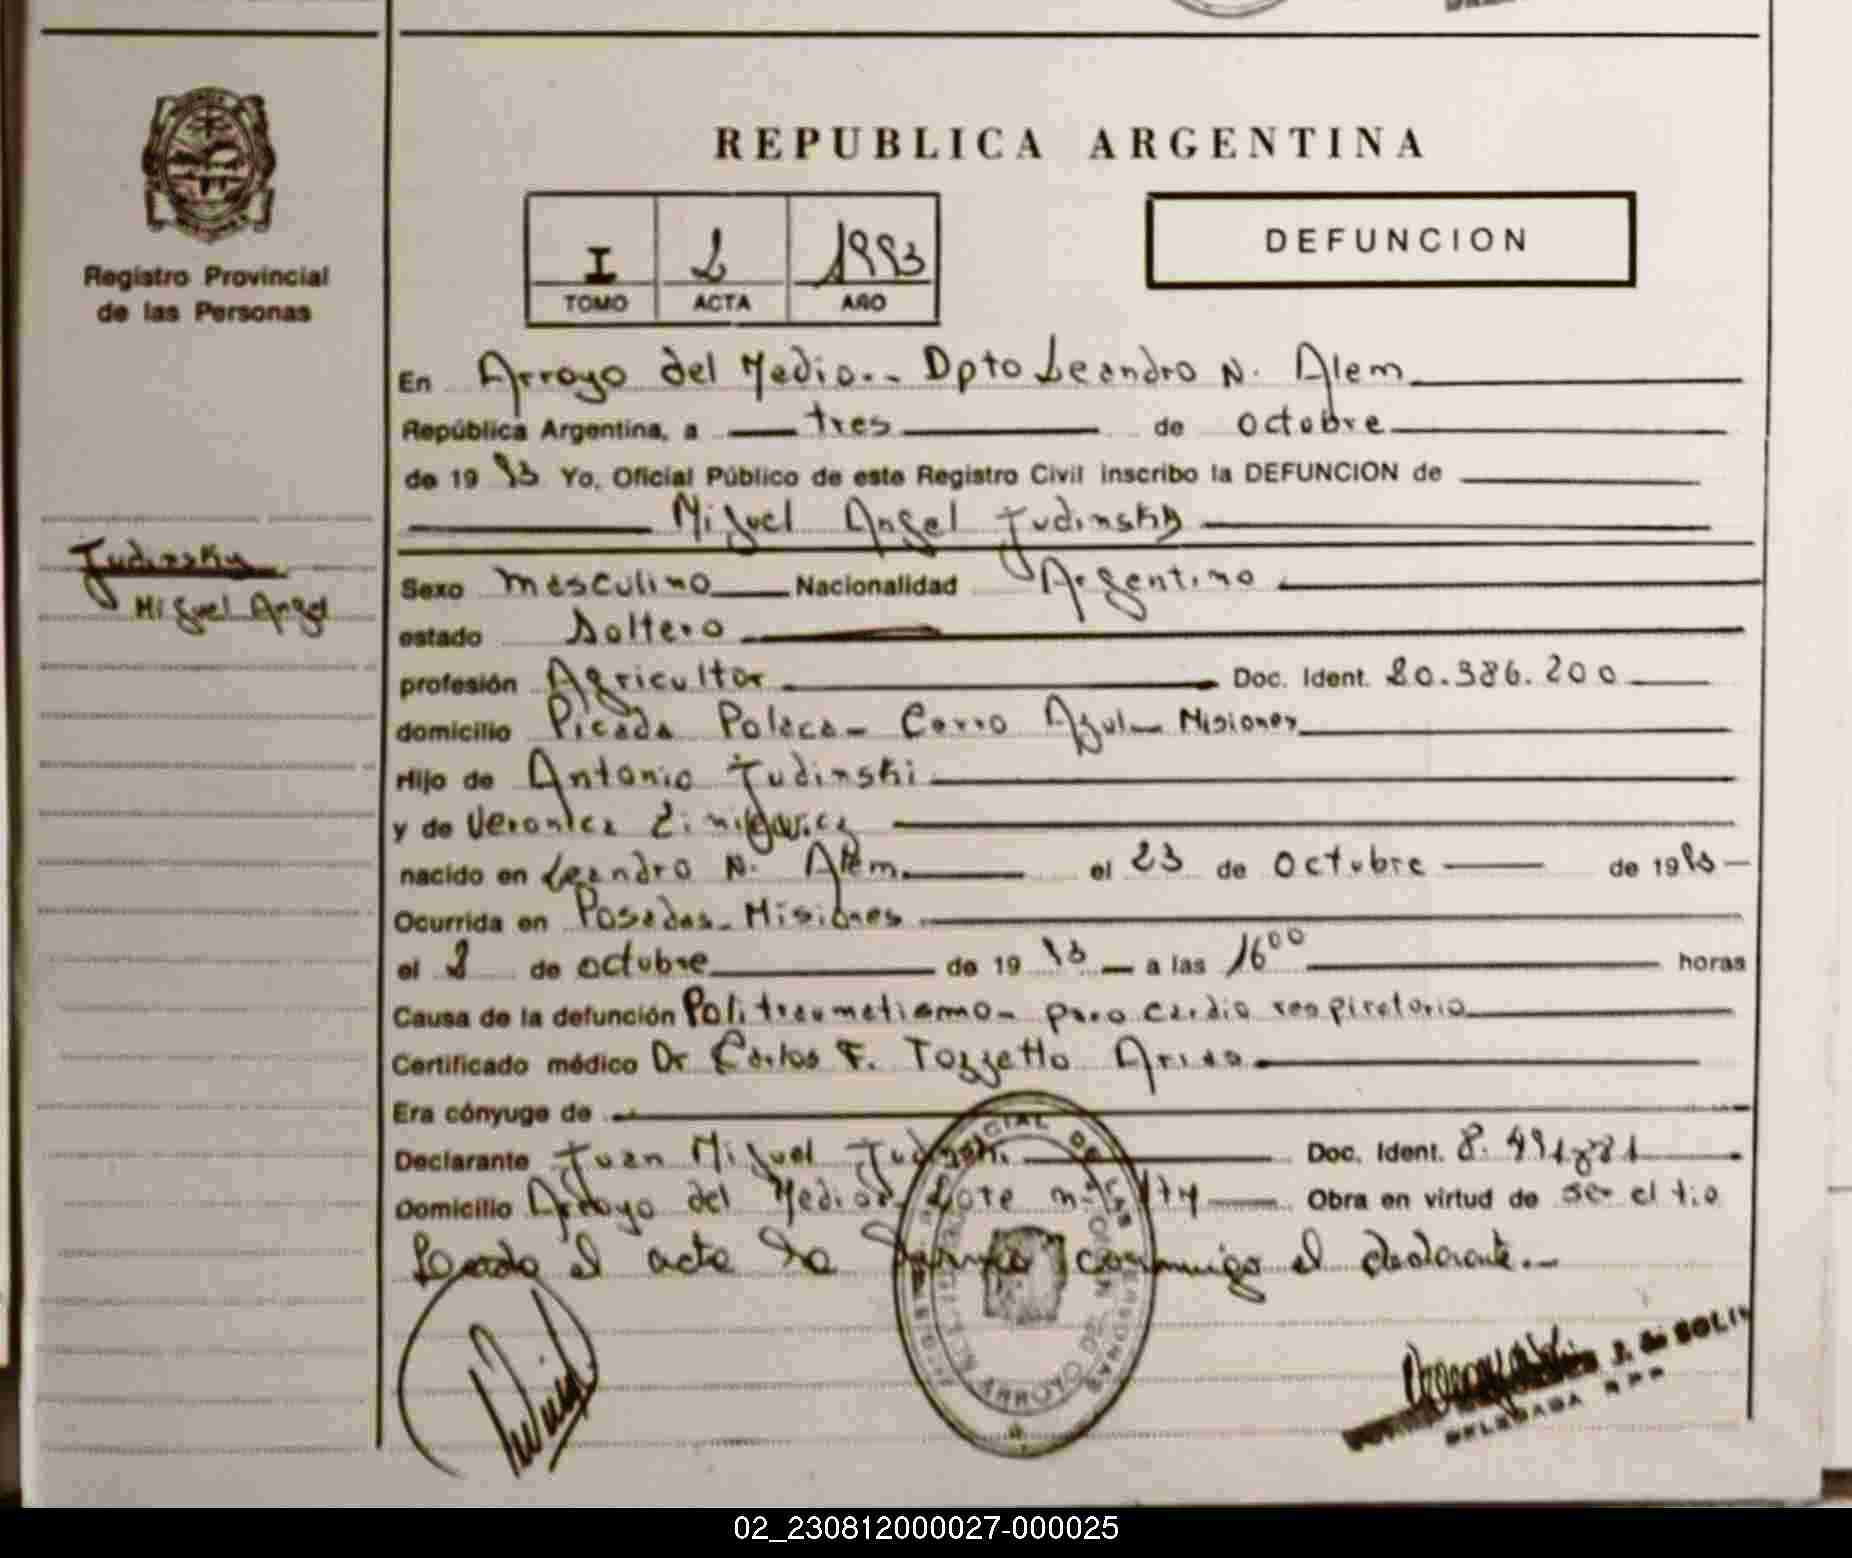 REPUBLICA ARGENTINA
Registro Provincial
de las Personas
DEFUNCION
I 2 1993
TOMO ACTA AÑO
En Arroyo del Medio.- Dpto Leandro N. Alem
República Argentina, a tres de octubre
de 19 93 Yo, Oficial Público de este Registro Civil inscribo la DEFUNCION de
Miguel Angel Judinsky
Judinsky
Miguel Angel
Sexo masculino Nacionalidad Argentino
estado Soltero
profesión Agricultor Doc. Ident. 20.386.200
domicilio Picada Polaca - Cerro Azul - Misiones
Hijo de Antonio Judinski
y de Veronica
nacido en Leandro N. Alem el 23 de octubre de 19
Ocurrida en Posadas - Misiones
el 2 de octubre de 19 93 a las 16 00 horas
Causa de la defunción Politraumatismo - paro cardio respiratorio
Certificado médico Dr Carlos F. Tozzetto
Era cónyuge de
Declarante Juan Miguel Judinski Doc. Ident. 8.
Domicilio Arroyo del Medio - Lote nº 174 Obra en virtud de ser el tio
Leida el acta la firma conmigo el declarante.-
J. de BOLIN
DELEGADA RPP
02_230812000027-000025